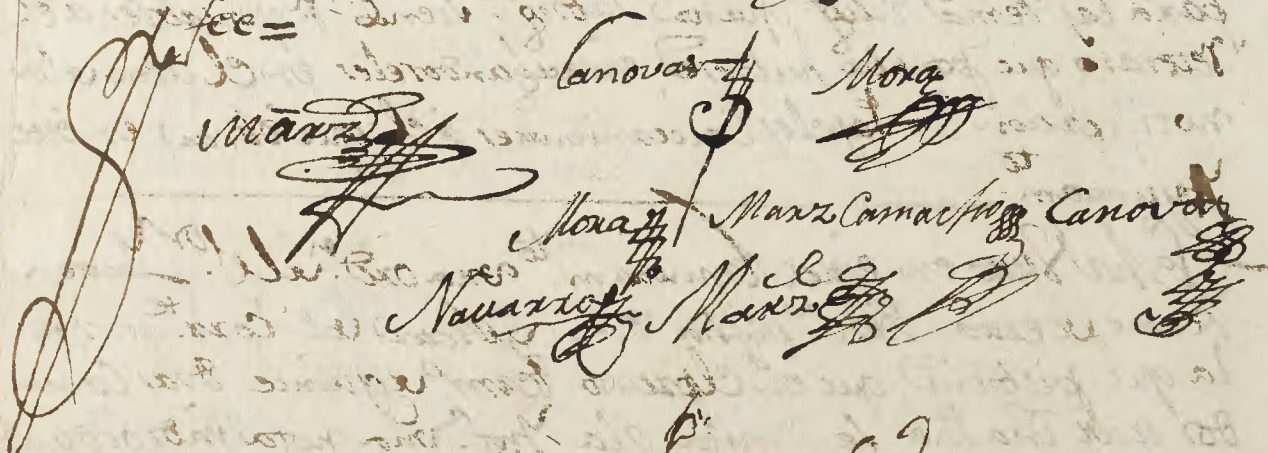 fee=
Canovas Mora
Márz
Mora Marz Camacho Canovas
Navarro Marz